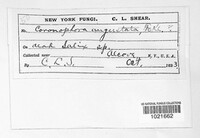 NEW YORK FUNGI. C. L. SHEAR.
on Coronophora angustata Fckl.
on dead Salix sp.
Collected near Alcove N. Y., U. S. A.
By C. L. S. Oct. 1893
1021662